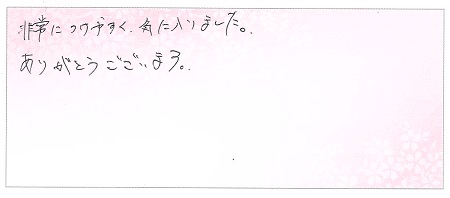 非常につかいやすく、気に入りました。
ありがとうございます。